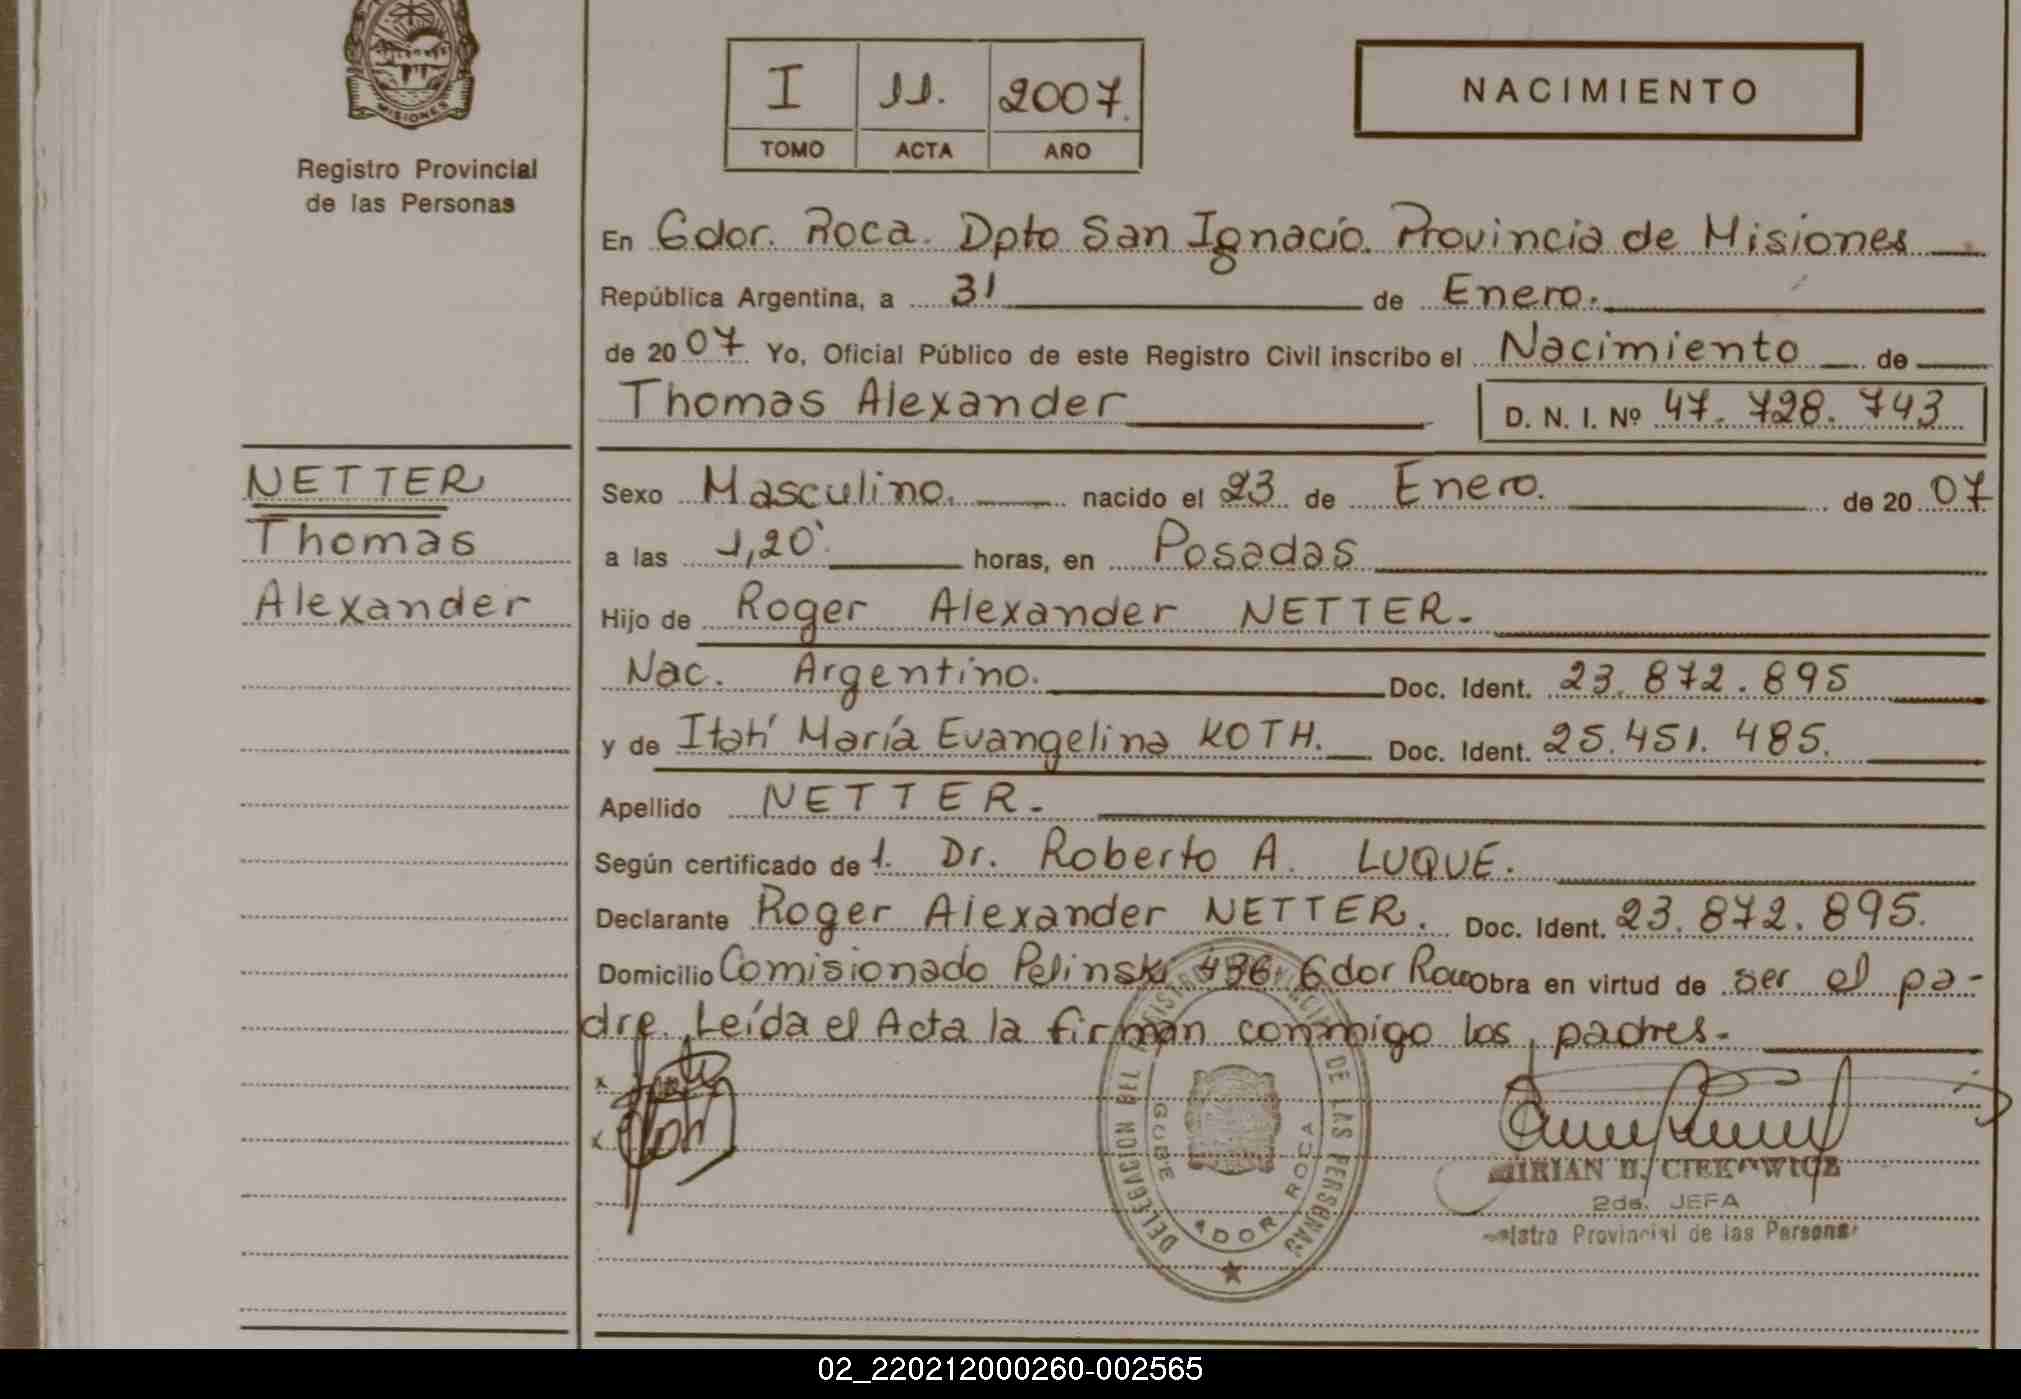 MISIONES
Registro Provincial
de las Personas
I 11. 2007.
TOMO ACTA AÑO
NACIMIENTO
En Gdor. Roca. Dpto San Ignacio. Provincia de Misiones
República Argentina, a 31 de Enero.
de 2007 Yo, Oficial Público de este Registro Civil inscribo el Nacimiento de
Thomas Alexander
D. N. I. Nº 47.728.743
NETTER
Thomas
Alexander
Sexo Masculino. nacido el 23 de Enero. de 2007
a las 1,20' horas, en Posadas
Hijo de Roger Alexander NETTER.
Nac. Argentino. Doc. Ident. 23.872.895
y de Itatí María Evangelina KOTH. Doc. Ident. 25.451.485.
Apellido NETTER.
Según certificado de 1. Dr. Roberto A. LUQUE.
Declarante Roger Alexander NETTER. Doc. Ident. 23.872.895.
Domicilio Comisionado Pelinski 436. Gdor Roca Obra en virtud de ser el pa-
dre. Leída el Acta la firman conmigo los padres.
x
x
DELEGACION DEL REGISTRO PROVINCIAL DE LAS PERSONAS
GOBERNADOR ROCA
MIRIAN H. CIEKOWICZ
2da. JEFA
Registro Provincial de las Personas
02_220212000260-002565